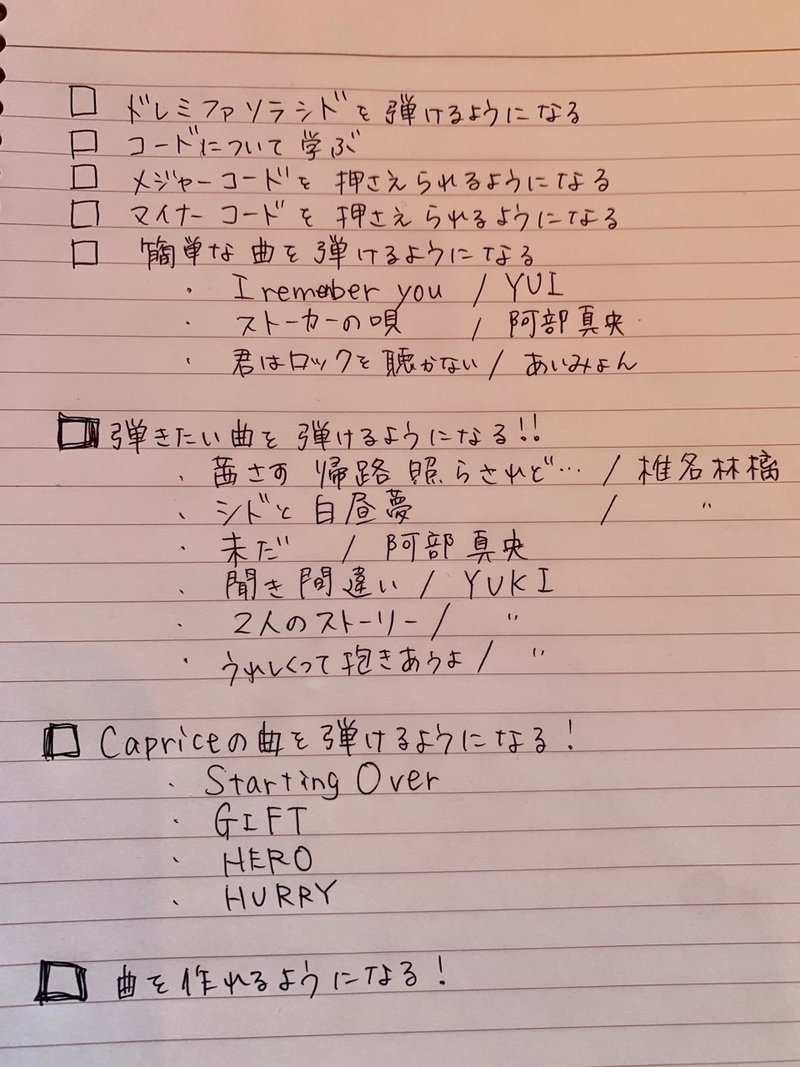 □ ドレミファソラシドを弾けるようになる
□ コードについて学ぶ
□ メジャーコードを押さえられるようになる
□ マイナーコードを押さえられるようになる
□ 簡単な曲を弾けるようになる
・ I remember you / YUI
・ ストーカーの唄 / 阿部真央
・ 君はロックを聴かない / あいみょん
□ 弾きたい曲を弾けるようになる!!
・ 茜さす 帰路照らされど… / 椎名林檎
・ シドと白昼夢 / 〃
・ 未だ / 阿部真央
・ 聞き間違い / YUKI
・ 2人のストーリー / 〃
・ うれしくって抱きあうよ / 〃
□ Capriceの曲を弾けるようになる!
・ Starting Over
・ GIFT
・ HERO
・ HURRY
□ 曲を作れるようになる!